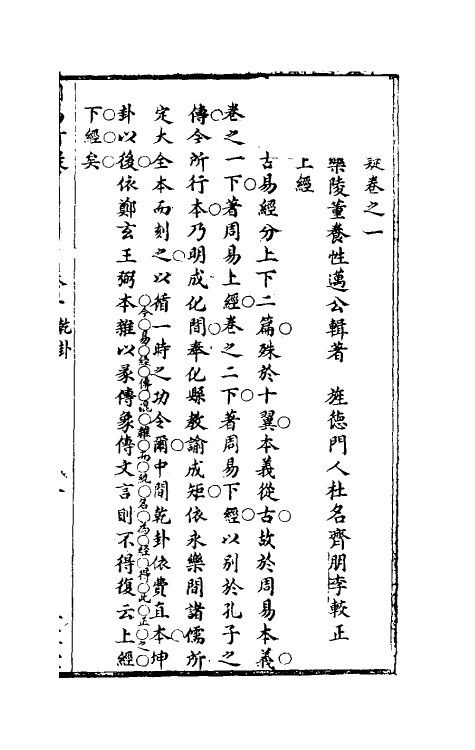 疑卷之一
樂陵董養性邁公輯著　旌德門人杜名齊朋李較正
上經
古易經分上下二篇殊於十翼本義從古故於周易本義
卷之一下著周易上經卷之二下著周易下經以別於孔子之
傳今所行本乃明成化間奉化縣教諭成矩依永樂間諸儒所
定大全本而刻之以循一時之功令爾中間乾卦依費直本坤
卦以後依鄭玄王弼本雜以彖傳象傳文言則不得復云上經
下經矣
今易經傳混雜而統名為經得此正之
乾卦